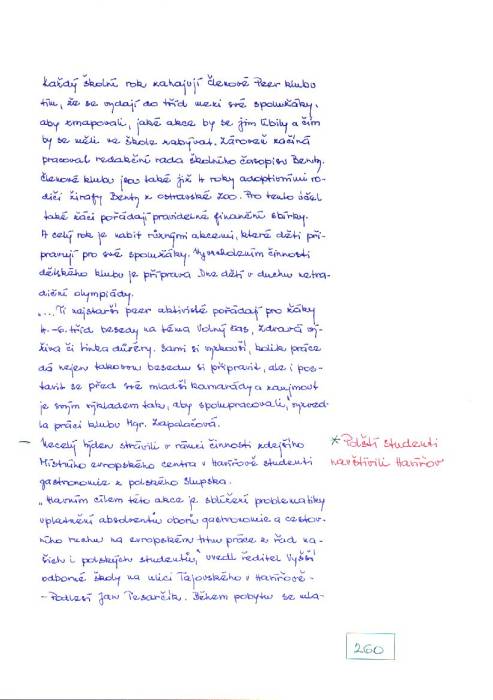 Každý školní rok zahajují členové Peer klubu
tím, že se vydají do tříd mezi své spolužáky,
aby zmapovali, jaké akce by se jim líbily a čím
by se měli ve škole zabývat. Zároveň začíná
pracovat redakční rada školního časopisu Benty.
Členové klubu jsou také již 4 roky adoptivními ro-
diči žirafy Benty z ostravské zoo. Pro tento účel
také žáci pořádají pravidelné finanční sbírky.
A celý rok je nabit různými akcemi, které děti při-
pravují pro své spolužáky. Vyvrcholením činnosti
dětského klubu je příprava Dne dětí v duchu netra-
diční olympiády.
"... Ti nejstarší peer aktivisté pořádají pro žáky
4.-6. tříd besedy na téma Volný čas, Zdravá vý-
živa či Linka důvěry. Sami si vyzkouší, kolik práce
dá nejen takovou besedu si připravit, ale i pos-
tavit se před své mladší kamarády a zaujmout
je svým výkladem tak, aby spolupracovali," vyzved-
la práci klubu Mgr. Zapalačová.
- Necelý týden strávili v rámci činnosti zdejšího
Místního evropského centra v Havířově studenti
gastronomie z polského Slupska.
* Polští studenti
navštívili Havířov
"Hlavním cílem této akce je sblížení problematiky
uplatnění absolventů oborů gastronomie a cestov-
ního ruchu na evropském trhu práce z řad na-
šich i polských studentů," uvedl ředitel Vyšší
odborné školy na ulici Tajovského v Havířově-
- Podlesí Jan Tesarčík. Během pobytu se mla-
260